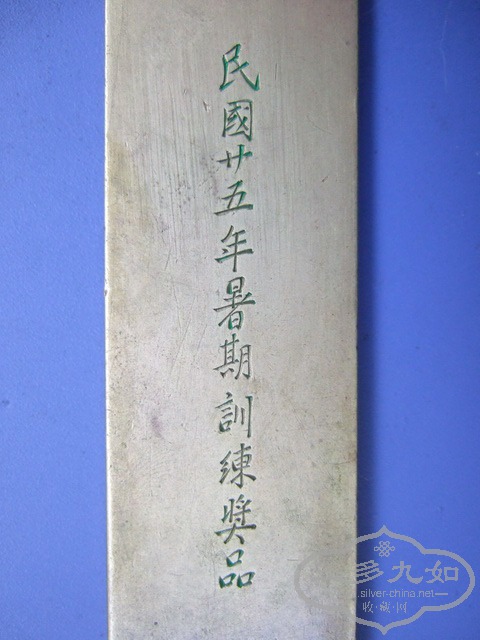 民國廿五年暑期訓練奬品
多九如
silver-china.net
收藏网